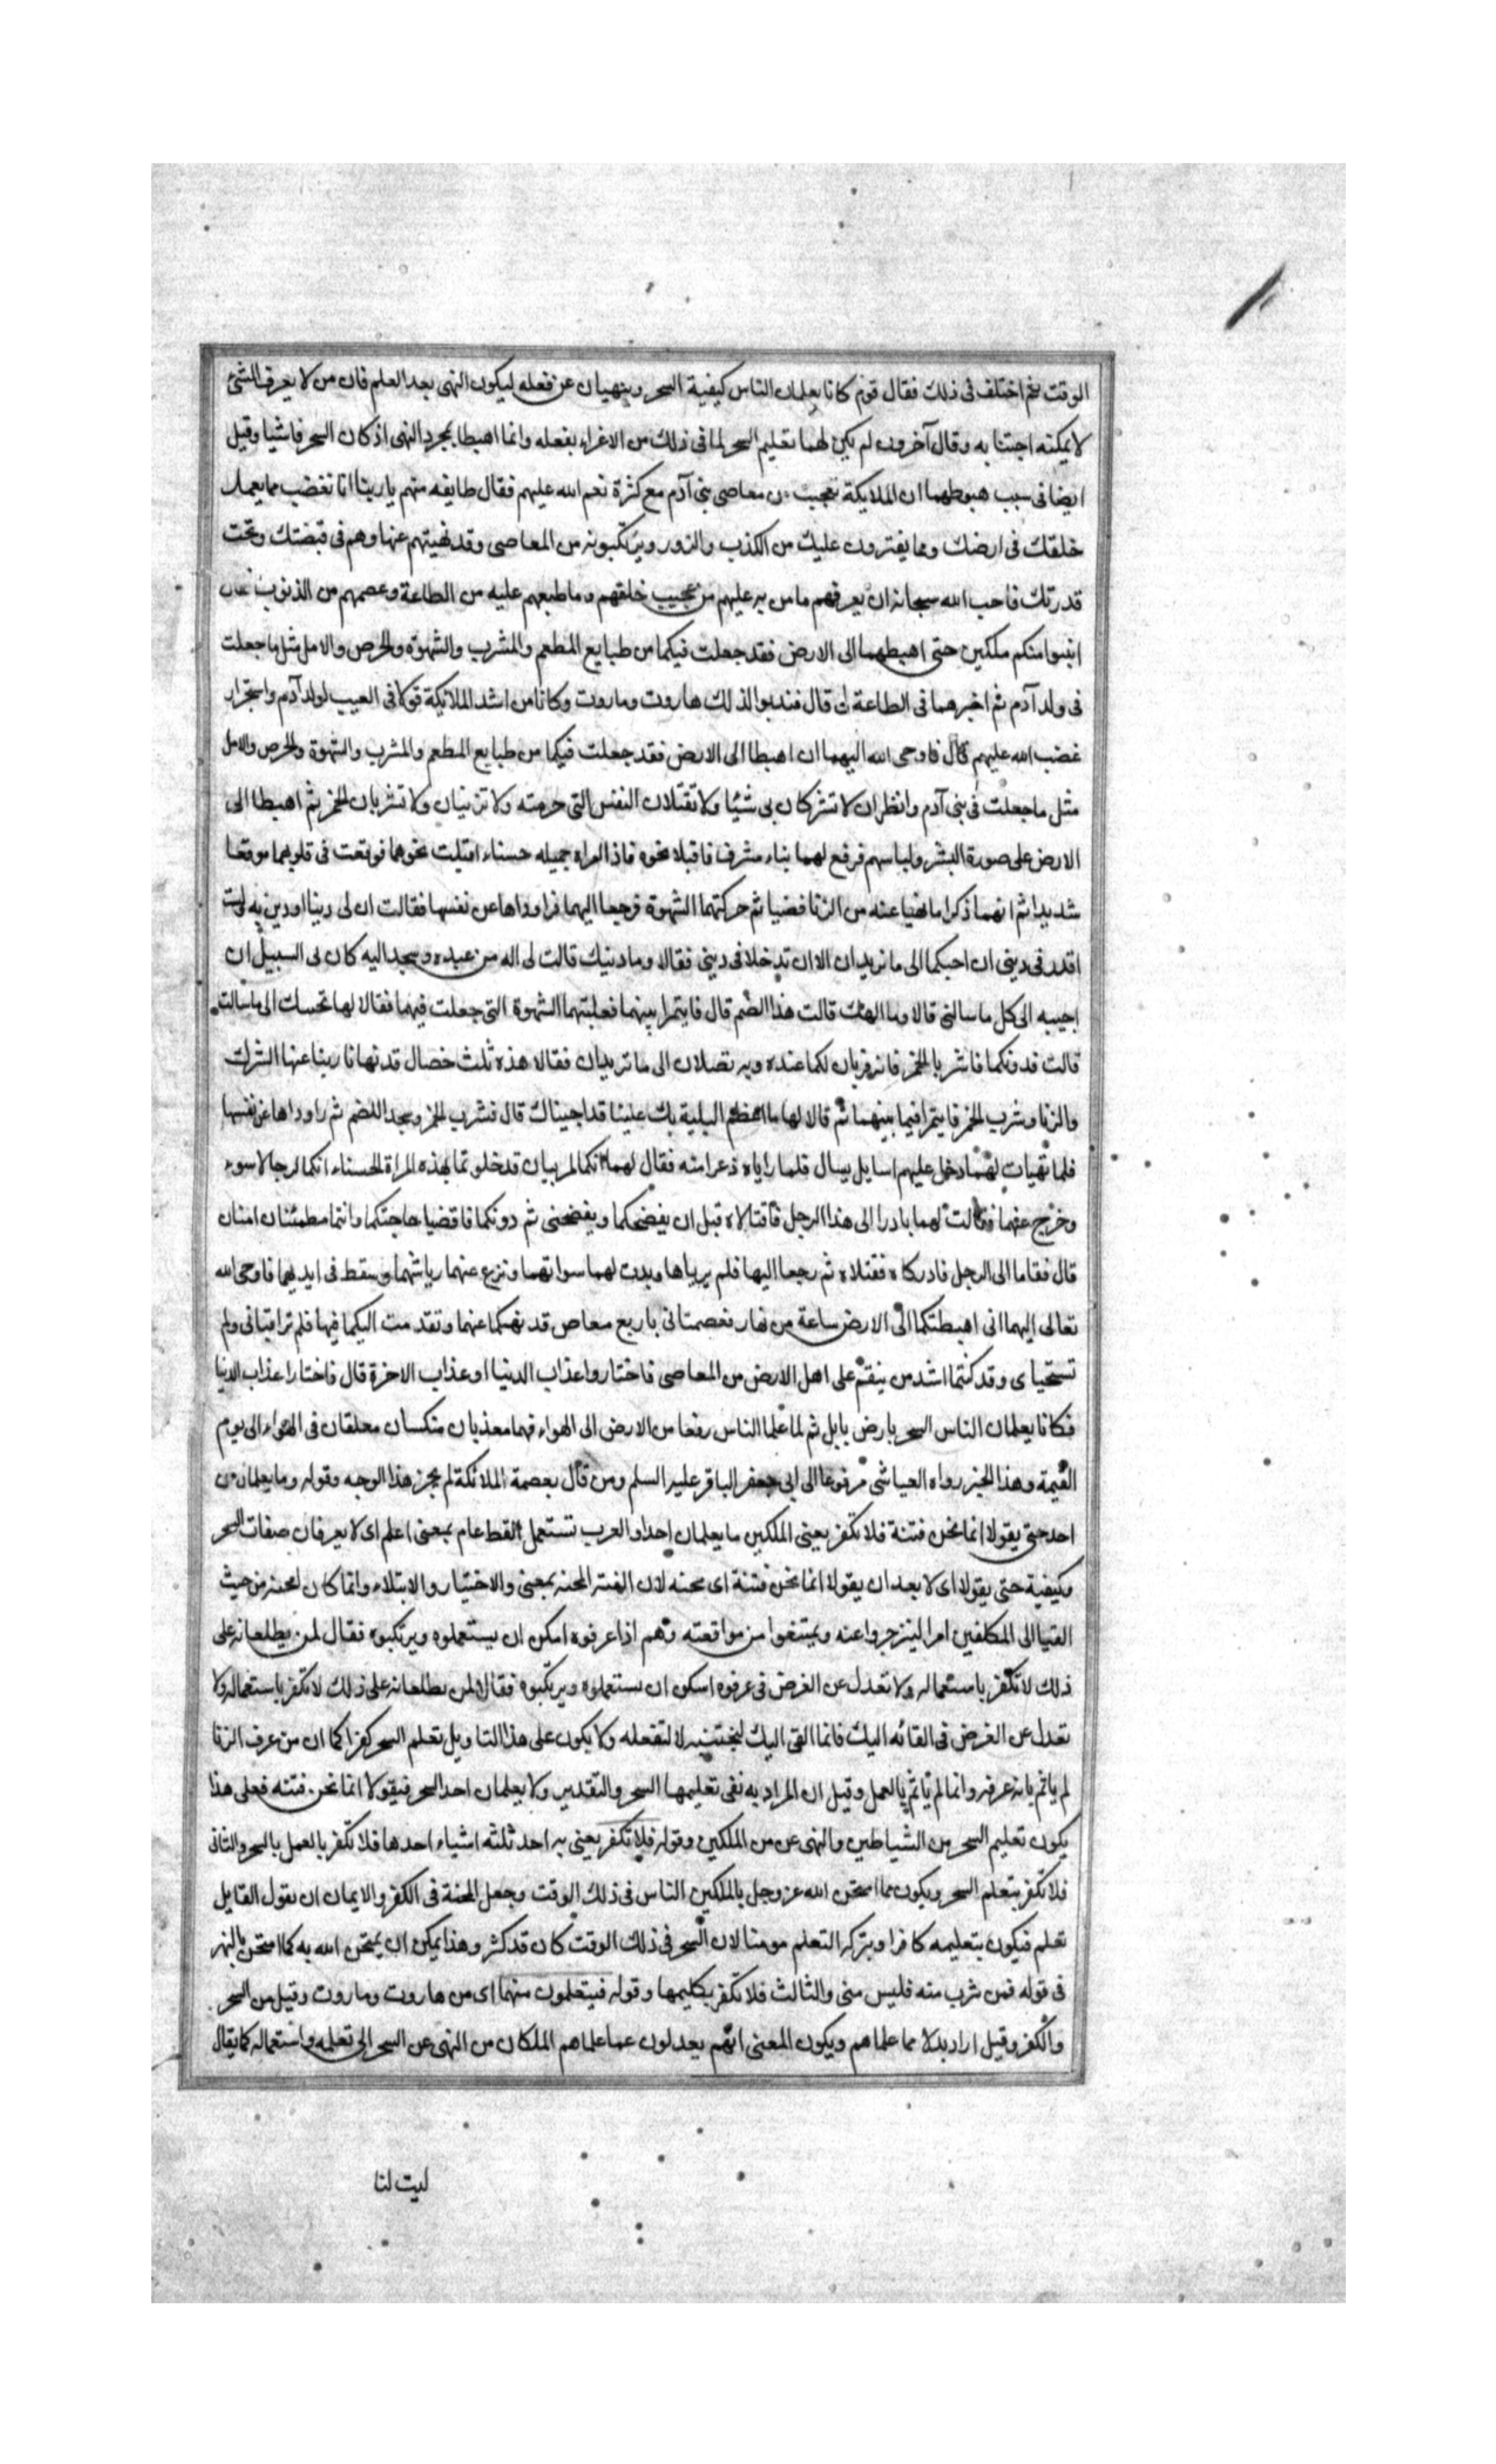 الوقت ثم اختلف في ذلك فقال قوم كانا يعلمان الناس كيفية السحر وينهيان عن فعله ليكون النهي بعد العلم فان من لا يعرف الشئ
لا يمكنه اجتنا به وقال آخرون لم يكن لهما تعليم السحر لما في ذلك من الاغراء بفعله وانما اهبطا بمجرد النهي اذ كان السحر فاشيا وقيل
ايضا في سبب هبوطهما ان الملايكة تعجبت من معاصي بني آدم مع كثرة نعم الله عليهم فقال طايفه منهم يا ربنا اما تغضب مما يعمل
خلقك في ارضك ومما يفترون عليك من الكذب والزور ويرتكبونه من المعاصي وقد نهيتهم عنها وهم في قبضتك وتحت
قدرتك فاحب الله سبحانه ان يعرفهم ما من به عليهم من عجيب خلقهم وما طبعهم عليه من الطاعة وعصمهم من الذنوب
انبوا منكم ملكين حتى اهبطهما الى الارض فقد جعلت فيكما من طبايع المطعم والمشرب والشهوة والحرص والامل مثل ما جعلت
في ولد آدم ثم اخبرهما في الطاعة لي قال فندبوا لذلك هاروت وماروت وكانا من اشد الملائكة قولا في العيب لولد آدم واستجرار
غضب الله عليهم قال فاوحى الله اليهما ان اهبطا الى الارض فقد جعلت فيكما من طبايع المطعم والمشرب والشهوة والحرص والامل
مثل ما جعلت في بني آدم وانظرا ان لا تشركان بي شيئا ولا تقتلان النفس التي حرمته ولا تزنيان ولا تشربان الخمر ثم اهبطا الى
الارض على صورة البشر ولباسهم فرفع لهما بناء مشرف فاقبلا نحوه فاذا امراه جميله حسناء اقبلت نحوهما فوقعت في قلوبهما موقعا
شديدا ثم انهما ذكرا ما نهيا عنه من الزنا فمضيا ثم حركتهما الشهوة فرجعا اليهما فراوداها عن نفسها فقالت ان لي دينا ادين به لست
اقدر في ديني ان اجيبكما الى ما تريدان الا ان تدخلا في ديني فقالا وما دينك قالت لي اله من عبده وسجد اليه كان لي السبيل ان
اجيبه الى كل ما سالني قالا وما الهك قالت هذا الصنم قال فايتمرا بينهما فغلبتهما الشهوة التي جعلت فيهما فقالا لها نحسبك الى ما سالت
قالت فدونكما فاشربا الخمر فانه قربان لكما عنده وبه تصلان الى ما تريدان فقالا هذه ثلث خصال قد نهانا ربنا عنها الشرك
والزنا وشرب الخمر فايتمرا فيما بينهما ثم قالا لها ما اعظم البلية بك علينا قد اجبناك قال فشرب الخمر وسجد اللصنم ثم راوداها عن نفسها
فلما تهيات لهما دخل عليهم اسايل يسال فلما راياه ذعرا منه فقال لهما انكما لمريبان قد خلوتما بهذه المراة الحسناء انكما لرجالا سوء
وخرج عنهما فقالت لهما بادرا الى هذا الرجل فاقتلاه قبل ان يفضحكما ويفضحني ثم دونكما فاقضيا حاجتكما وانتما مطمئنان امنان
قال فقاما الى الرجل فادركاه فقتلاه ثم رجعا اليها فلم يرياها وبدت لهما سواتهما ونزع عنهما رياشهما وسقط في ايديهما فاوحى الله
تعالى اليهما اني اهبطتكما الى الارض ساعة من نهار فعصمتاني باربع معاص قد نهيتكما عنهما وتقدمت اليكما فيها فلم تراقباني ولم
تستحيا ى وقد كنتما اشد من ينقم على اهل الارض من المعاصي فاختاروا عذاب الدنيا او عذاب الاخرة قال فاختارا عذاب الدنيا
فكانا يعلمان الناس السحر بارض بابل ثم لما علما الناس رفعا من الارض الى الهواء فهما معذبان منكسان معلقان في الهواء الى يوم
القيمة وهذا الخبر رواه العياشي مرفوعا الى ابي جعفر الباقر عليه السلم ومن قال بعصمة الملائكة لم يجز هذا الوجه وقوله وما يعلمان من
احد حتى يقولا انما نحن فتنة فلا تكفر يعني الملكين ما يعلمان احدا والعرب تستعمل لفظ عام بمعنى اعلم اى لا يعرفان صفات السحر
وكيفية حتى يقولا اى لا بعد ان يقولا انما نحن فتنة اى محنه لان الفتنه المحنه بمعنى والاختبار والابتلاء وانما كان لمحنه من حيث
القيا الى المكلفين امرا لينزجروا عنه ويمتنعوا من مواقعته وهم اذا عرفوه امكن ان يستعملوه ويرتكبوه فقال لمن يطلعانه على
ذلك لا تكفر باستعماله ولا تعدل عن الغرض في عرفوه امكن ان يستعملوه ويرتكبوه فقالا لمن يطلعانه على ذلك لا تكفر باستعماله ولا
تعدل عن الغرض في القائه اليك فانما القى اليك ليجتنبه لا لتفعله ولا يكون على هذا التاويل تعلم السحر كفرا كما ان من عرف الزنا
لم ياثم بانه عرفه وانما لم ياثم بالعمل وقيل ان المراد به نفي تعليمها السحر والتقدير ولا يعلمان احدا السحر فيقولا انما نحن فتنه فعلى هذا
يكون تعليم السحر من الشياطين والنهى عن من الملكين وقوله فلا تكفر يعني به احد ثلثه اشياء احدها فلا تكفر بالعمل بالسحر والثاني
فلا تكفر بتعلم السحر ويكون مما امتحن الله عز وجل بالملكين الناس في ذلك الوقت وجعل المحنة في الكفر والايمان ان يقول القايل
تعلم فيكون بتعليمه كافرا وبتركه التعلم مومنا لان السحر في ذلك الوقت كان قد كثر وهذا يمكن ان يمتحن الله به كما امتحن بالنهر
في قوله فمن شرب منه فليس مني والثالث فلا تكفر بكليهما وقوله فيتعلمون منهما اى من هاروت وماروت وقيل من السحر
والكفر وقيل اراد بدلا مما علماهم ويكون المعنى انهم يعدلون عما علماهم الملكان من النهى عن السحر الى تعلمه واستعماله كما يقال
ليت لنا